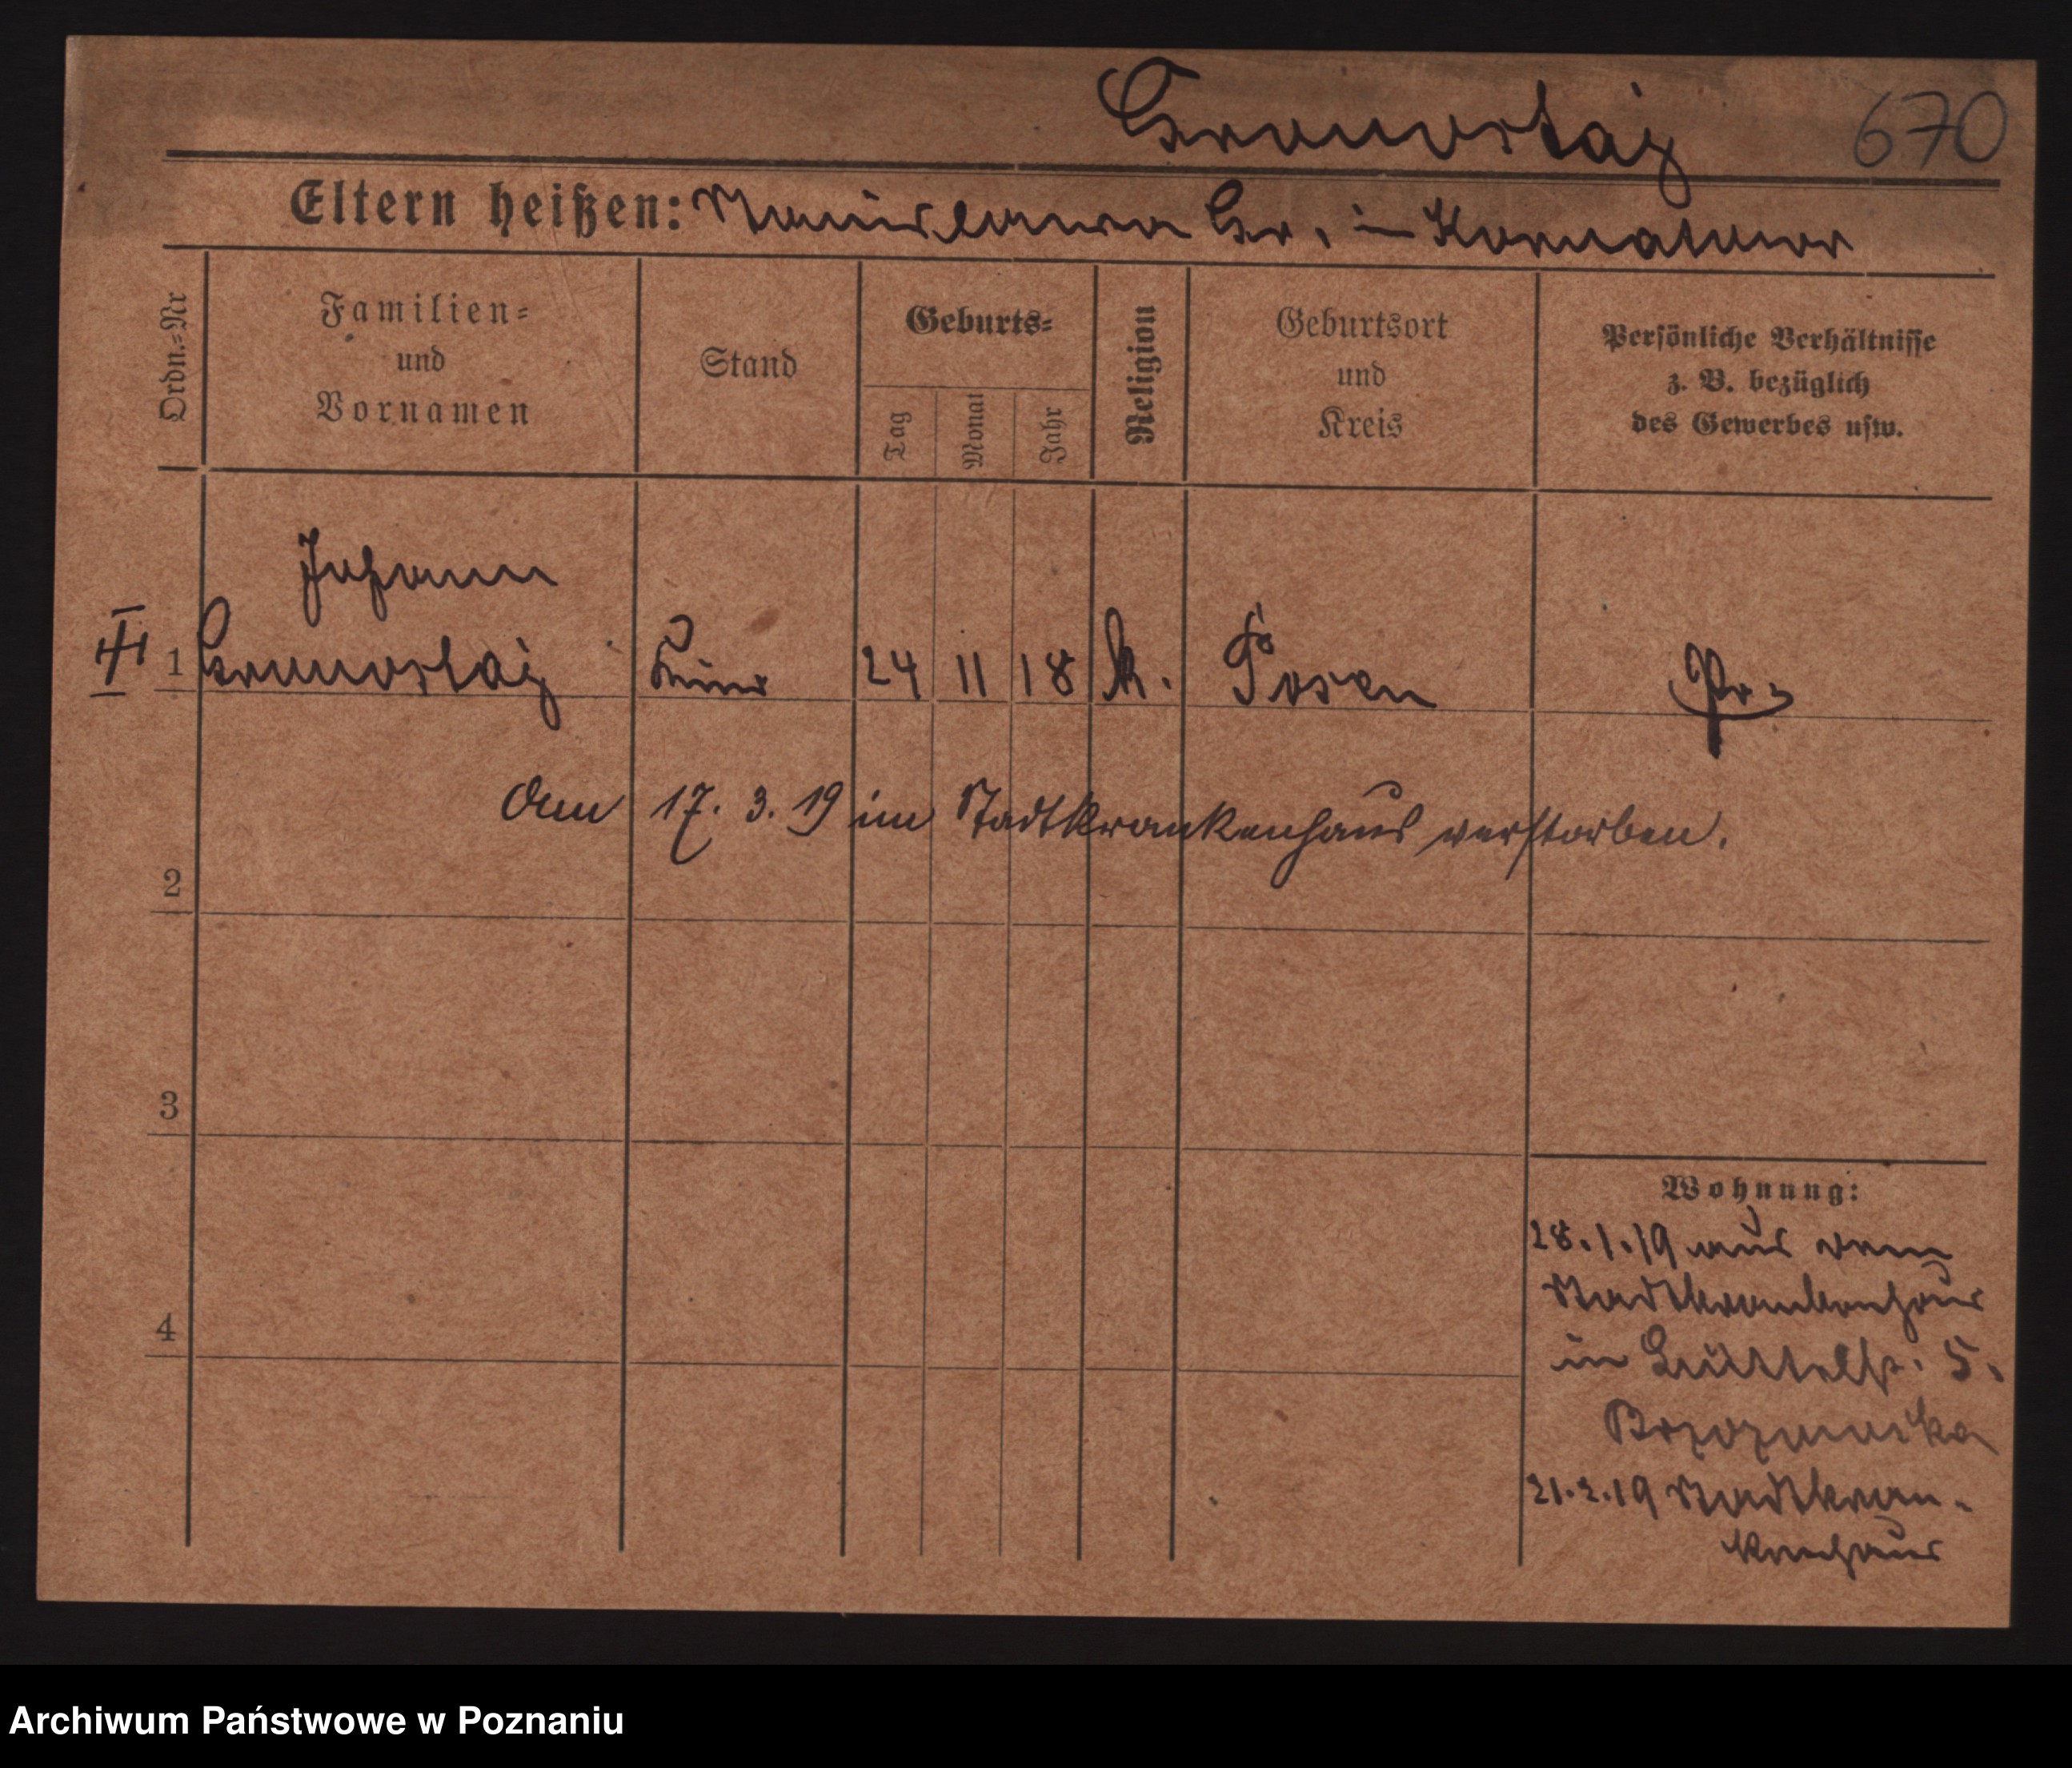 Gronostaj 670
Eltern heißen: Stanislawa Gr. in
Ordn.=Nr
Familien=
und
Vornamen
Stand
Geburts=
Tag
Monat
Jahr
Religion
Geburtsort
und
Kreis
Persönliche Verhältnisse
z. B. bezüglich
des Gewerbes usw.
Johann
1 Gronostaj Kind 24 11 18 k. Posen Pr.
am 17. 3. 19 im Stadtkrankenhaus verstorben.
2
3
4
Wohnung:
28.1.19 aus vom
Stadtkrankenhaus
in 5.
21.2.19 Stadtkran-
kenhaus
Archiwum Państwowe w Poznaniu